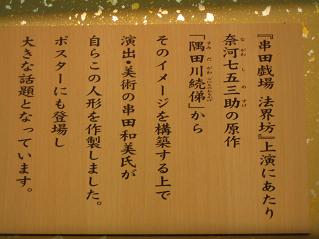 『串田戯場 法界坊』上演にあたり
奈河七五三助の原作
「隅田川続俤」から
そのイメージを構築する上で
演出・美術の串田和美氏が
自らこの人形を作製しました。
ポスターにも登場し
大きな話題となっています。